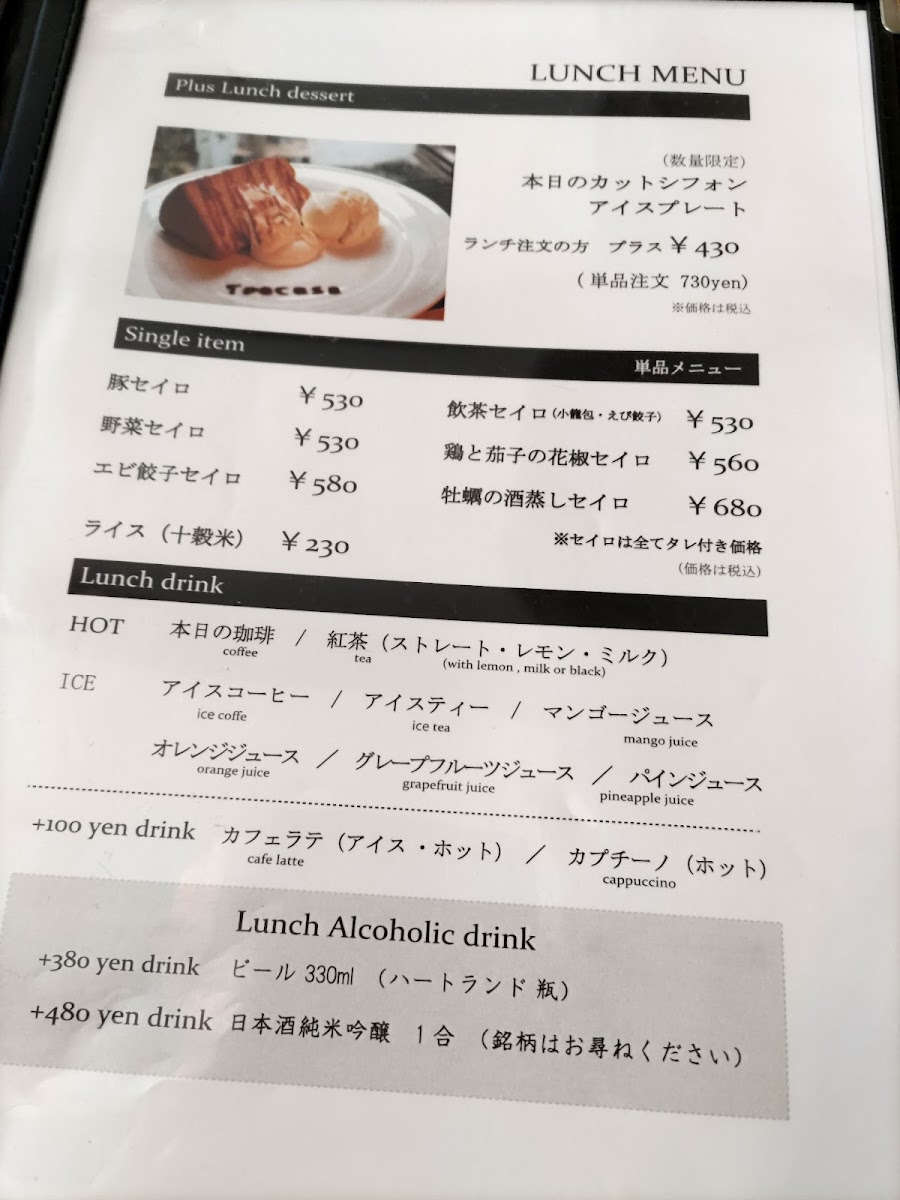 LUNCH MENU
Plus Lunch dessert
(数量限定)
本日のカットシフォン
アイスプレート
ランチ注文の方 プラス ¥ 430
( 単品注文 730yen)
※価格は税込
Trecasa
Single item 単品メニュー
豚セイロ ¥ 530
野菜セイロ ¥ 530
エビ餃子セイロ ¥ 580
ライス（十穀米） ¥ 230
飲茶セイロ (小龍包・えび餃子) ¥ 530
鶏と茄子の花椒セイロ ¥ 560
牡蠣の酒蒸しセイロ ¥ 680
※セイロは全てタレ付き価格
(価格は税込)
Lunch drink
HOT 本日の珈琲 / 紅茶（ストレート・レモン・ミルク）
coffee tea (with lemon , milk or black)
ICE アイスコーヒー / アイスティー / マンゴージュース
ice coffe ice tea mango juice
オレンジジュース / グレープフルーツジュース / パインジュース
orange juice grapefruit juice pineapple juice
+100 yen drink カフェラテ（アイス・ホット） / カプチーノ（ホット）
cafe latte cappuccino
Lunch Alcoholic drink
+380 yen drink ビール 330ml （ハートランド 瓶）
+480 yen drink 日本酒純米吟醸 1合 （銘柄はお尋ねください）